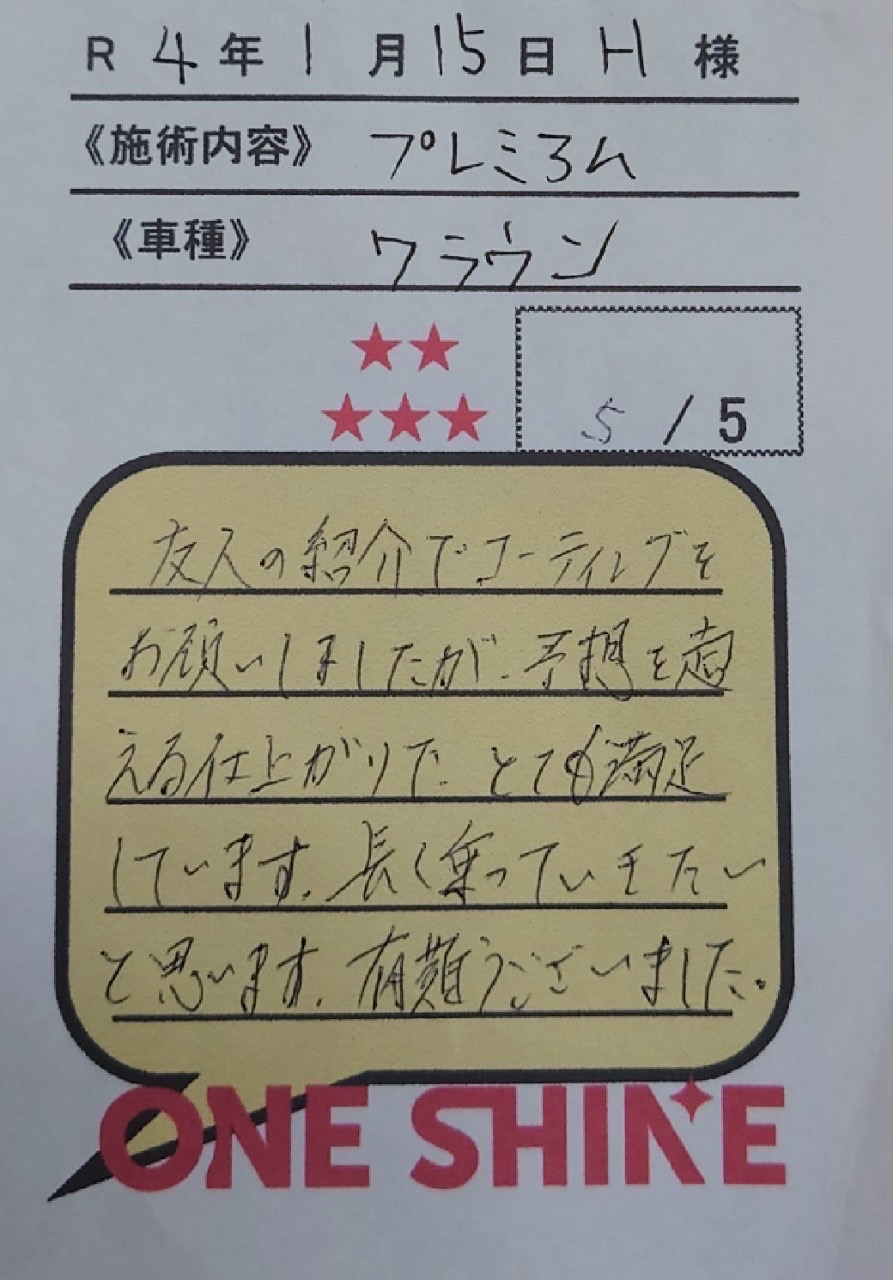 R 4年 1月 15日 H 様
《施術内容》 プレミアム
《車種》 クラウン
★★
★★★ 5 / 5
友人の紹介でコーティングを
お願いしましたが、予想を超
える仕上がりで とても満足
しています。長く乗っていきたい
と思います。有難うございました。
ONE SHINE